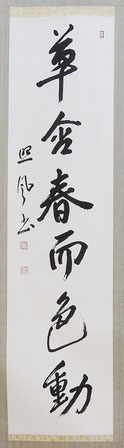 草含春而色動
照風書